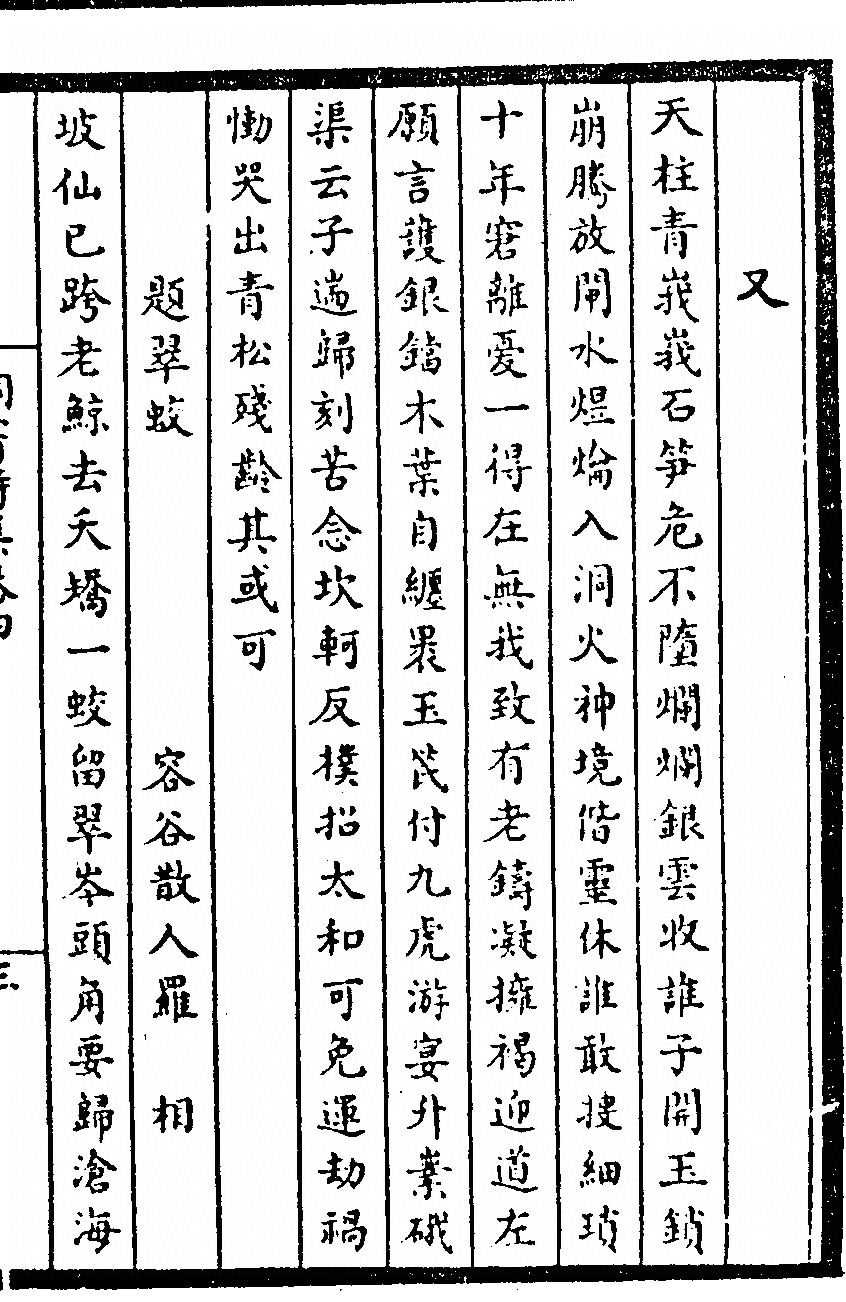 又
天柱青峩峩石笋危不墮爛爛銀雲收誰子開玉鎖
崩騰放閘水焜爚入洞火神境偕靈休誰敢搜細瑣
十年窘離憂一得在無我致有老鑄凝擁褐迎道左
願言護銀鐺木葉自纏裹玉芪付九虎游宴升業硪
渠云子遄歸刻苦念坎軻反樸招太和可免運劫禍
慟哭出青松殘齡其或可
題翠蛟 容谷散人羅 相
坡仙已跨老鯨去夭矯一蛟留翠岑頭角要歸滄海
洞霄詩集卷